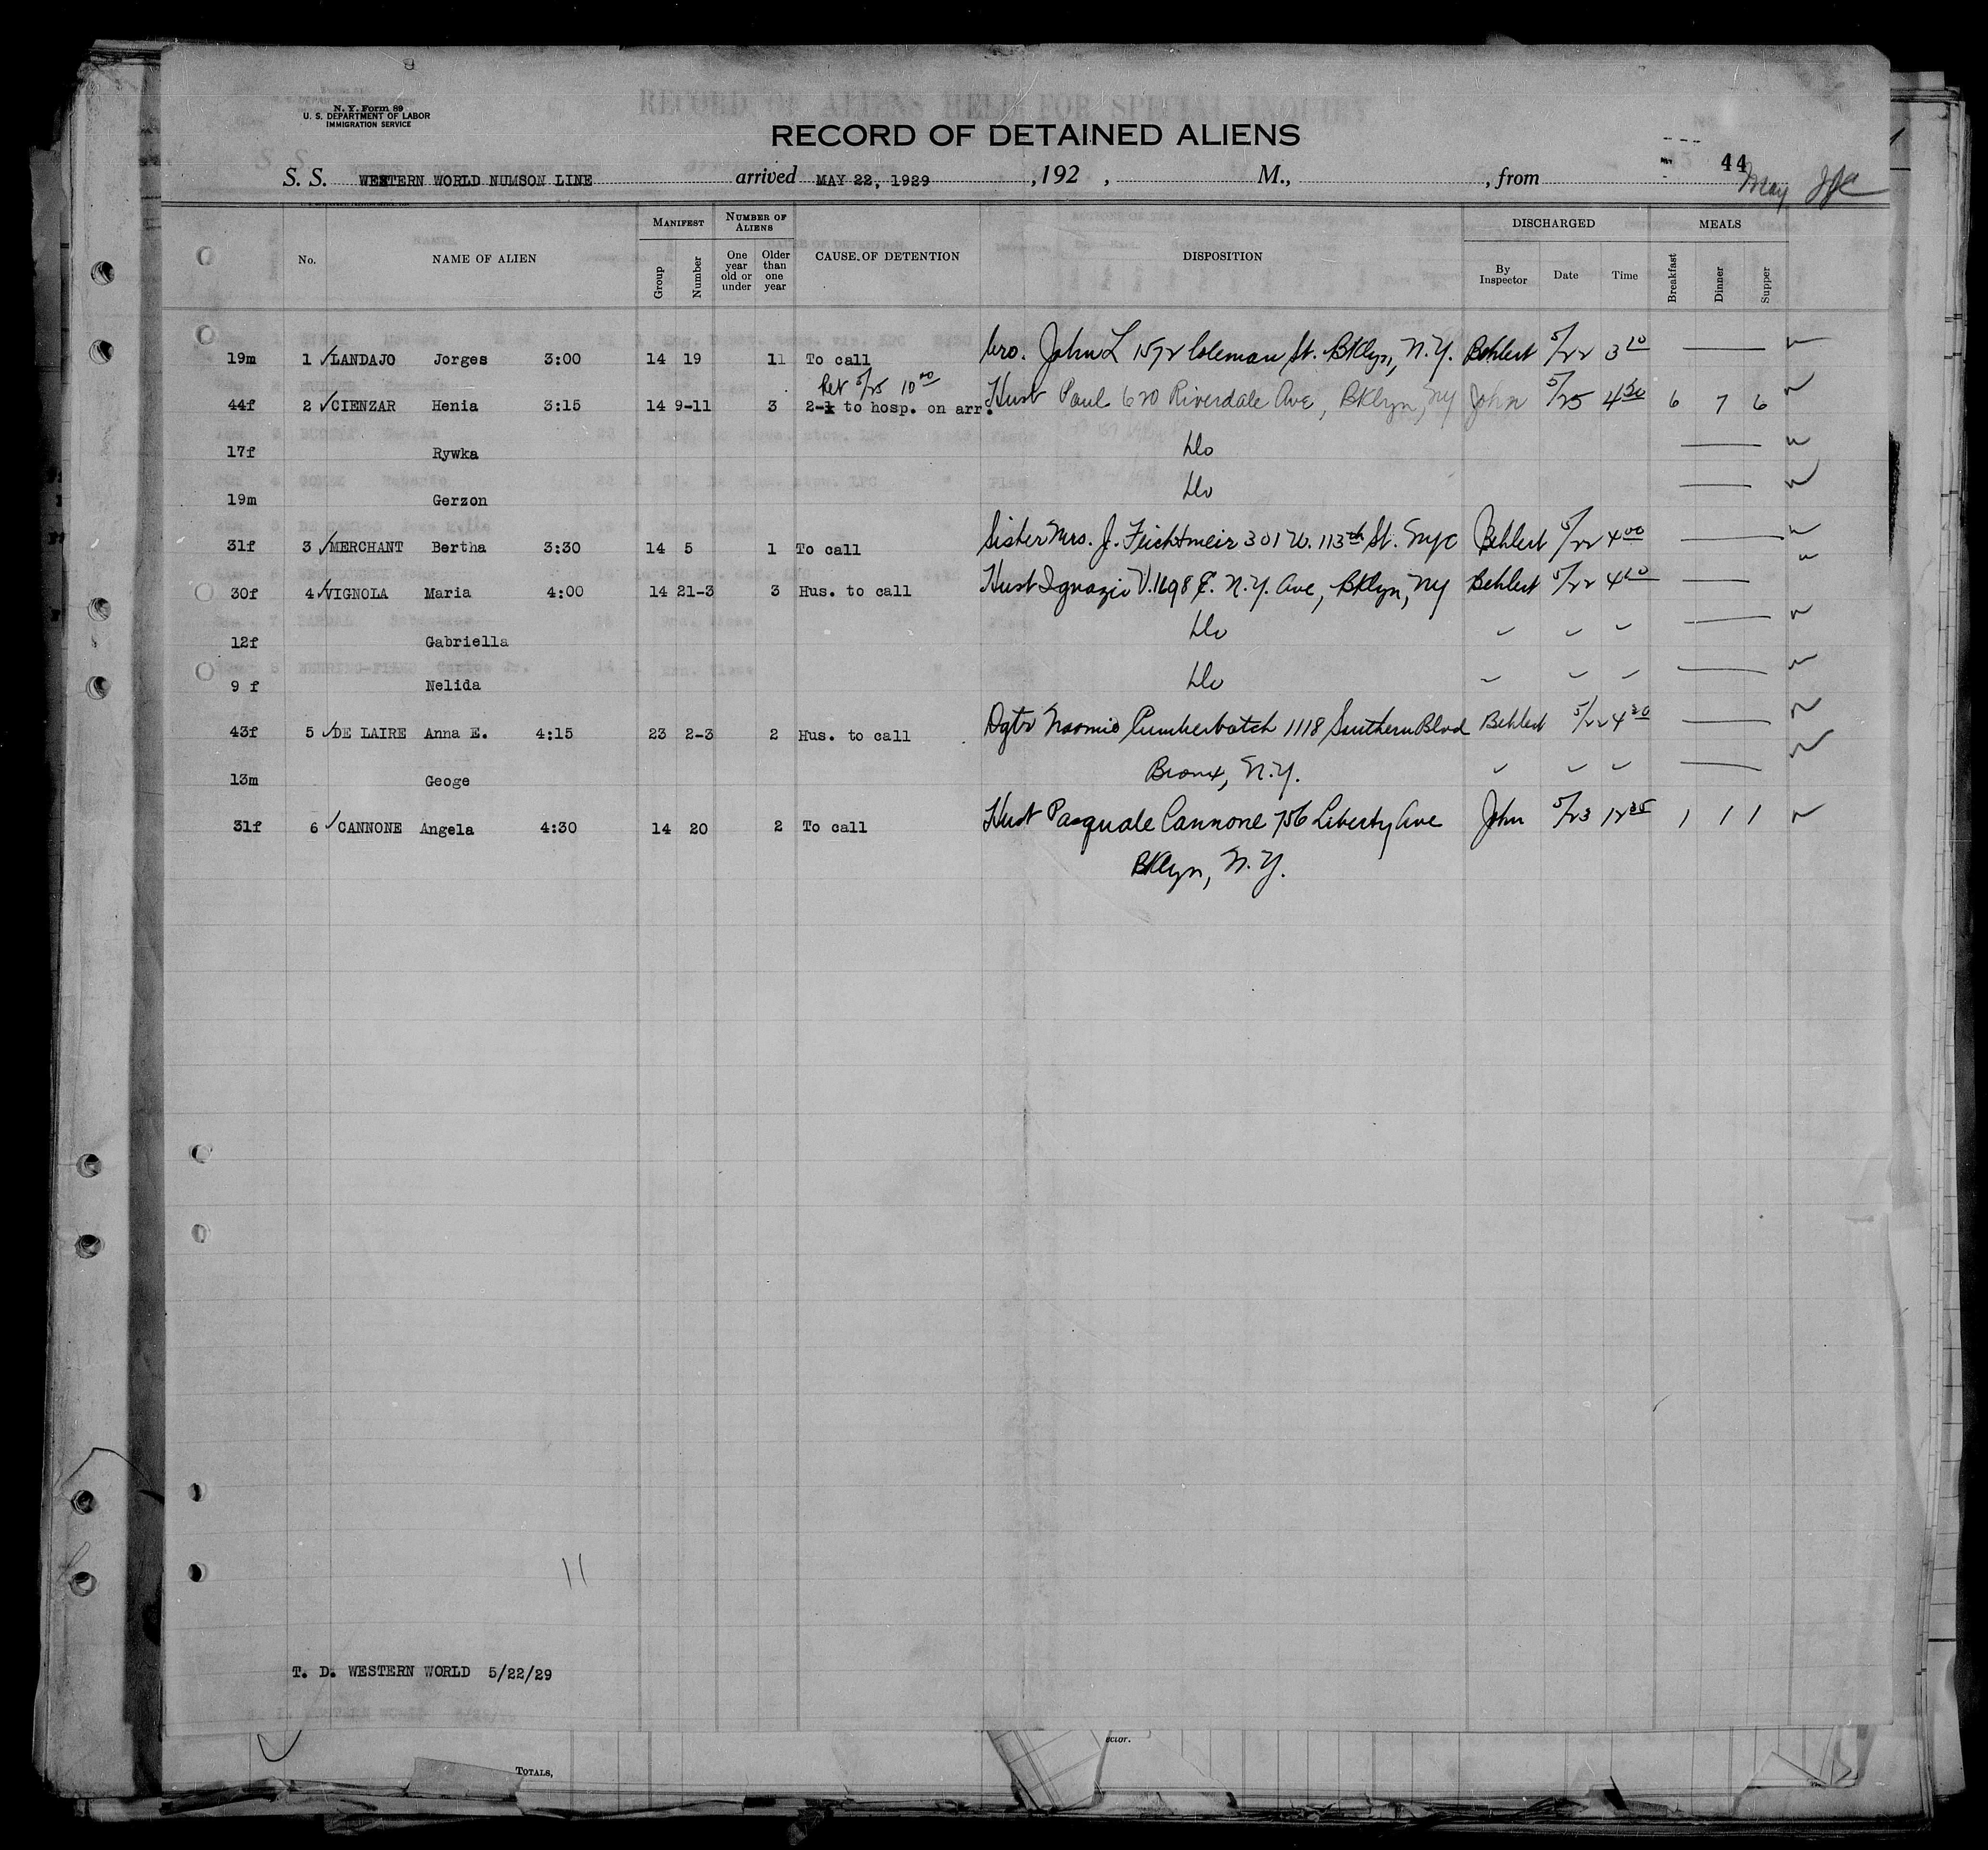 N. Y. Form 89
U. S. DEPARTMENT OF LABOR
IMMIGRATION SERVICE
RECORD OF ALIENS HELD FOR SPECIAL INQUIRY
RECORD OF DETAINED ALIENS
44
S. S. WESTERN WORLD NUMSON LINE arrived MAY 22, 1929 , 192 , M., , from May
No. NAME OF ALIEN MANIFEST Group Number NUMBER OF ALIENS One year old or under Older than one year CAUSE OF DETENTION DISPOSITION DISCHARGED By Inspector Date Time MEALS Breakfast Dinner Supper
19m 1 ✓ LANDAJO Jorges 3:00 14 19 11 To call bro. John L 1572 Coleman St. BKlyn, N.Y. Behlert 5/22 3 10
Ret 5/25 10 00
44f 2 ✓ CIENZAR Henia 3:15 14 9-11 3 2-1 to hosp. on arr. Husb Paul 620 Riverdale Ave, BKlyn, NY John 5/25 4 30 6 7 6
17f Rywka Do
19m Gerzon Do
31f 3 ✓ MERCHANT Bertha 3:30 14 5 1 To call Sister Mrs. J. Feichtmeir 301 W. 113th St. NYC Behlert 5/22 4 00
30f 4 ✓ VIGNOLA Maria 4:00 14 21-3 3 Hus. to call Husb Ignazio V. 1698 E. N.Y. Ave, BKlyn, NY Behlert 5/22 4 10
12f Gabriella Do
9 f Nelida Do
43f 5 ✓ DE LAIRE Anna E. 4:15 23 2-3 2 Hus. to call Dgtr Naomie Cumberbatch 1118 Southern Blvd Behlert 5/22 4 20
13m Geoge Bronx, N.Y.
31f 6 ✓ CANNONE Angela 4:30 14 20 2 To call Husb Pasquale Cannone 756 Liberty Ave John 5/23 12 35 1 1 1
BKlyn, N.Y.
11
T. D. WESTERN WORLD 5/22/29
ector.
TOTALS,